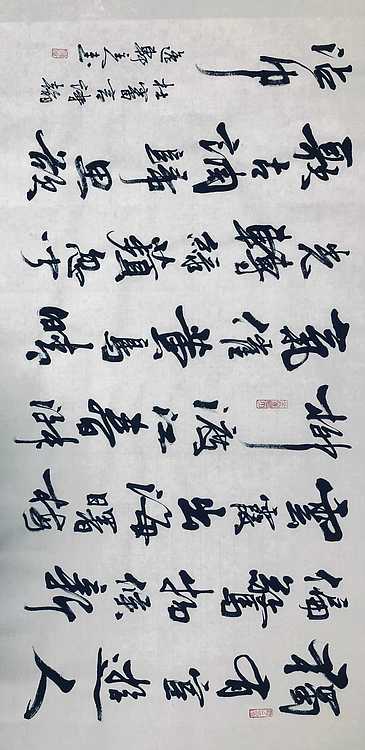 獨有宦遊人
偏驚物候新
雲霞出海曙梅
柳渡江春淑
氣催黃鳥晴
光轉綠蘋忽聞
歌古調歸思欲
沾巾
杜審言詩